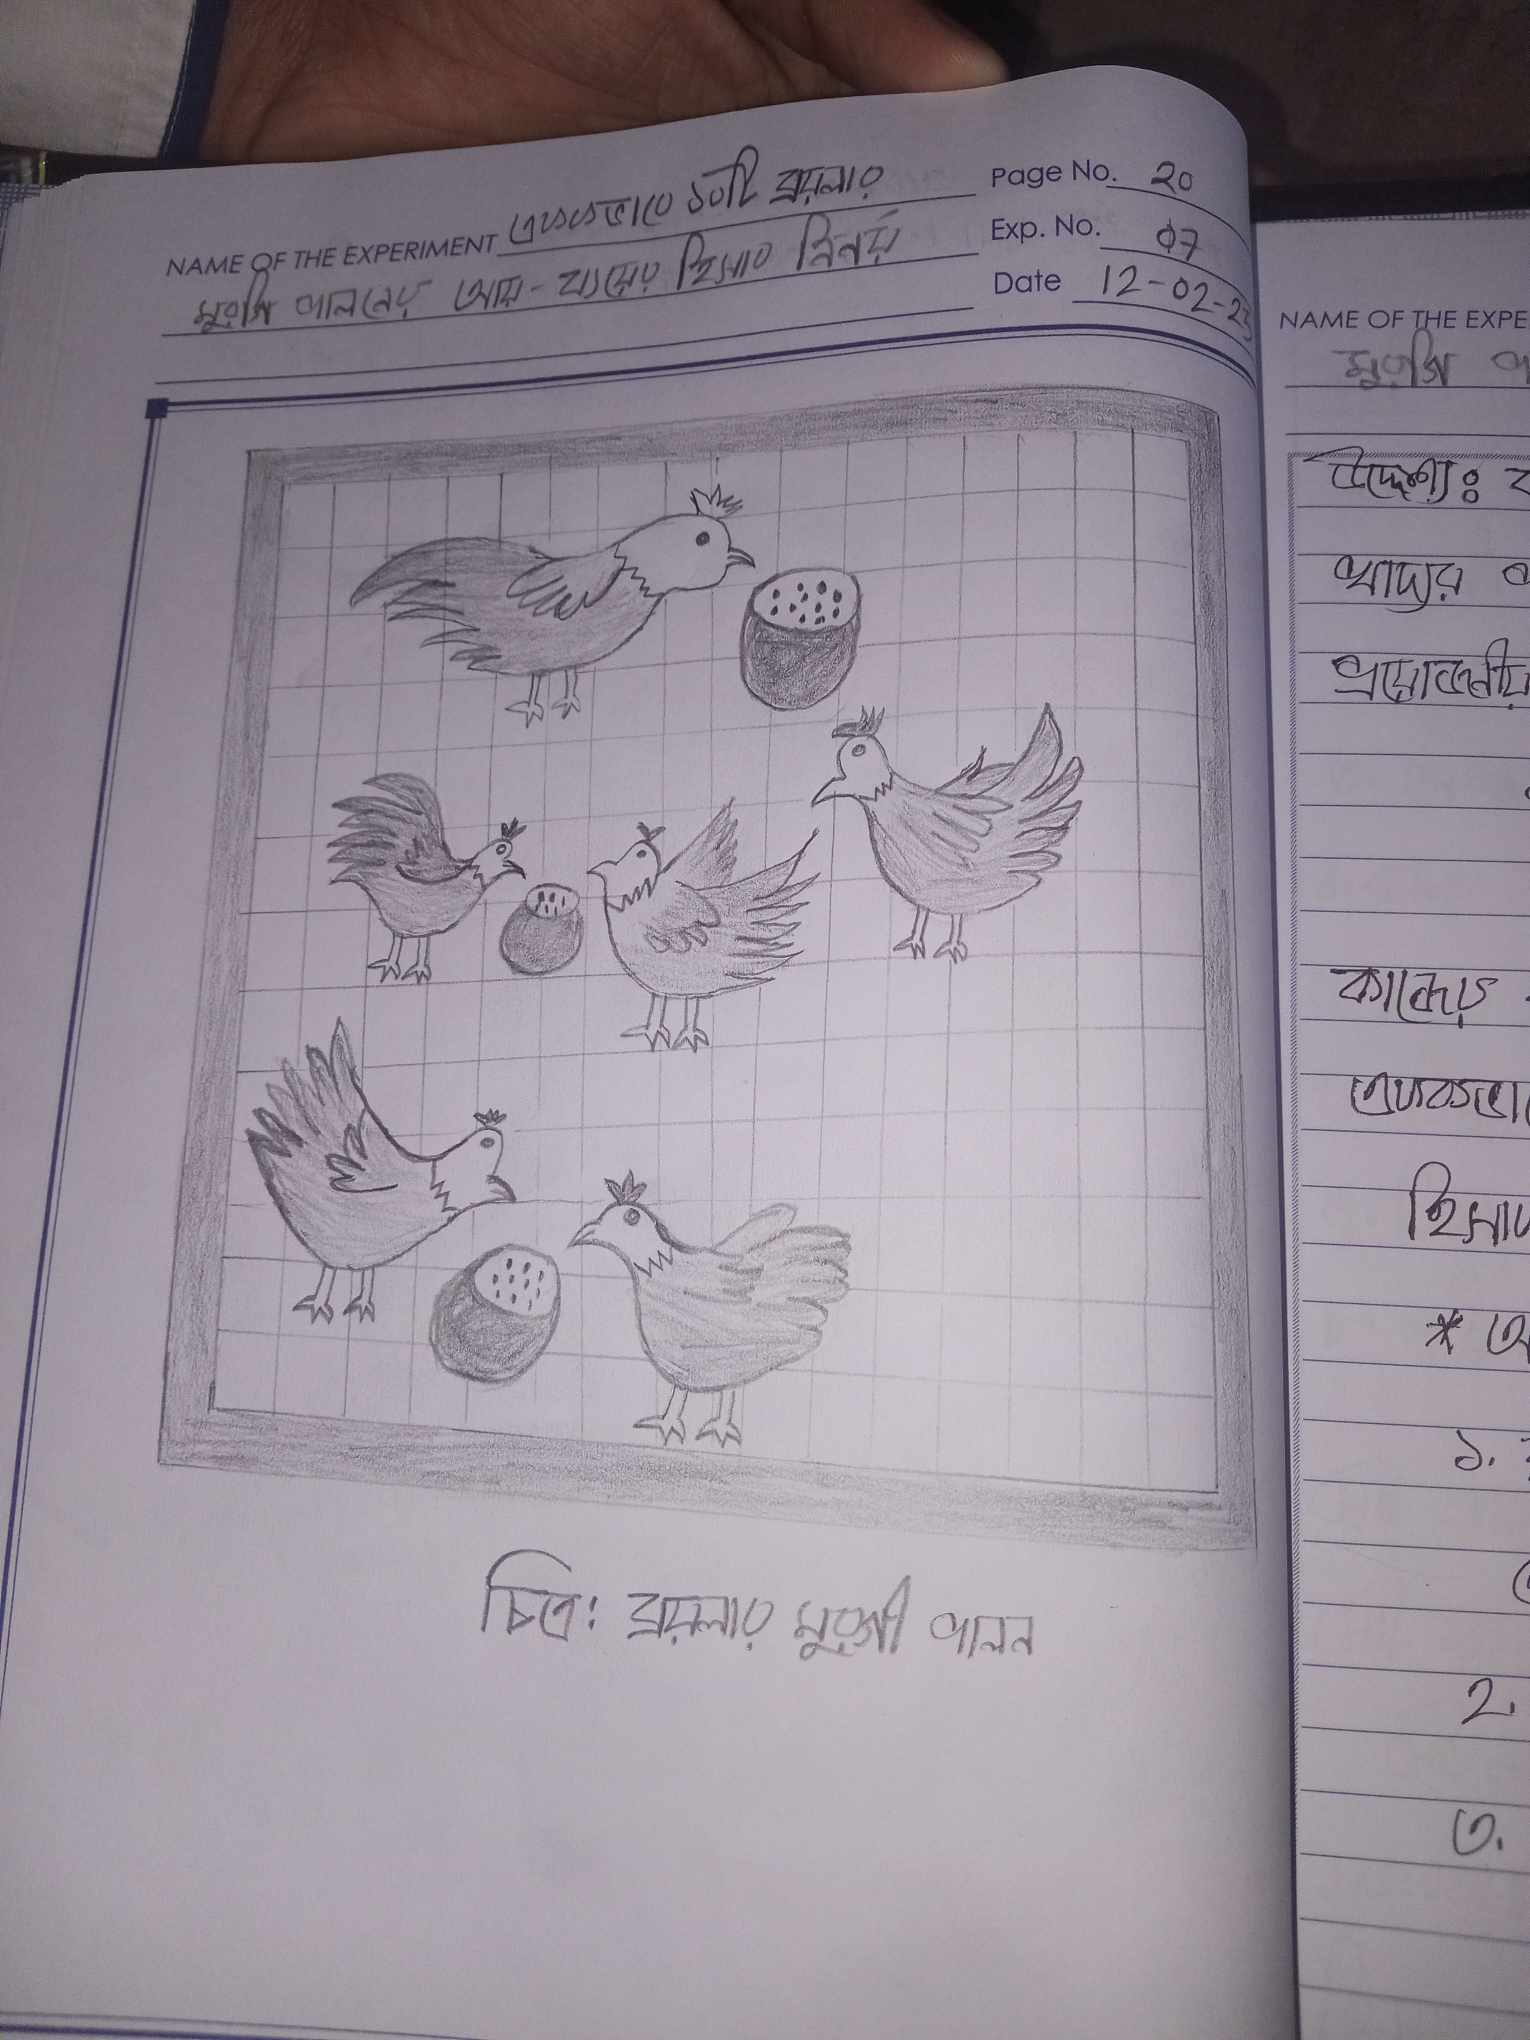 NAME OF THE EXPERIMENT এককভাবে ১০টি ব্রয়লার
মুরগি পালনের আয়-ব্যয়ের হিসাব নির্নয়
Page No. 20
Exp. No. 07
Date 12-02-23
চিত্র: ব্রয়লার মুরগী পালন
NAME OF THE EXPE
মুরগি
উদ্দেশ্য:
খাদ্যের
প্রয়োজনীয়
কাজের
এককভা
হিসাব
*
১.
২.
৩.